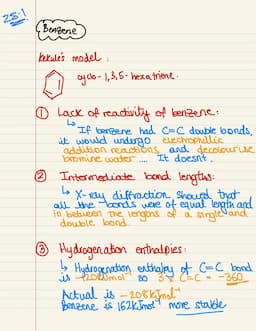 25.1
Benzene
Kekulé's model:
cyclo-1,3,5-hexatriene.
① Lack of reactivity of benzene:
↳ If benzene had C=C double bonds,
it would undergo electrophilic
addition reactions and decolourise
bromine water .... It doesnt.
② Intermediate bond lengths:
↳ X-ray diffraction showed that
all the bonds were of equal length and
in between the lengths of a single and
double bond.
③ Hydrogenation enthalpies:
↳ Hydrogenation enthalpy of C=C bond
is -120kJmol⁻¹ so 3 x C=C = -360
Actual is -208kJmol⁻¹
Benzene is 152kJmol⁻¹ more stable